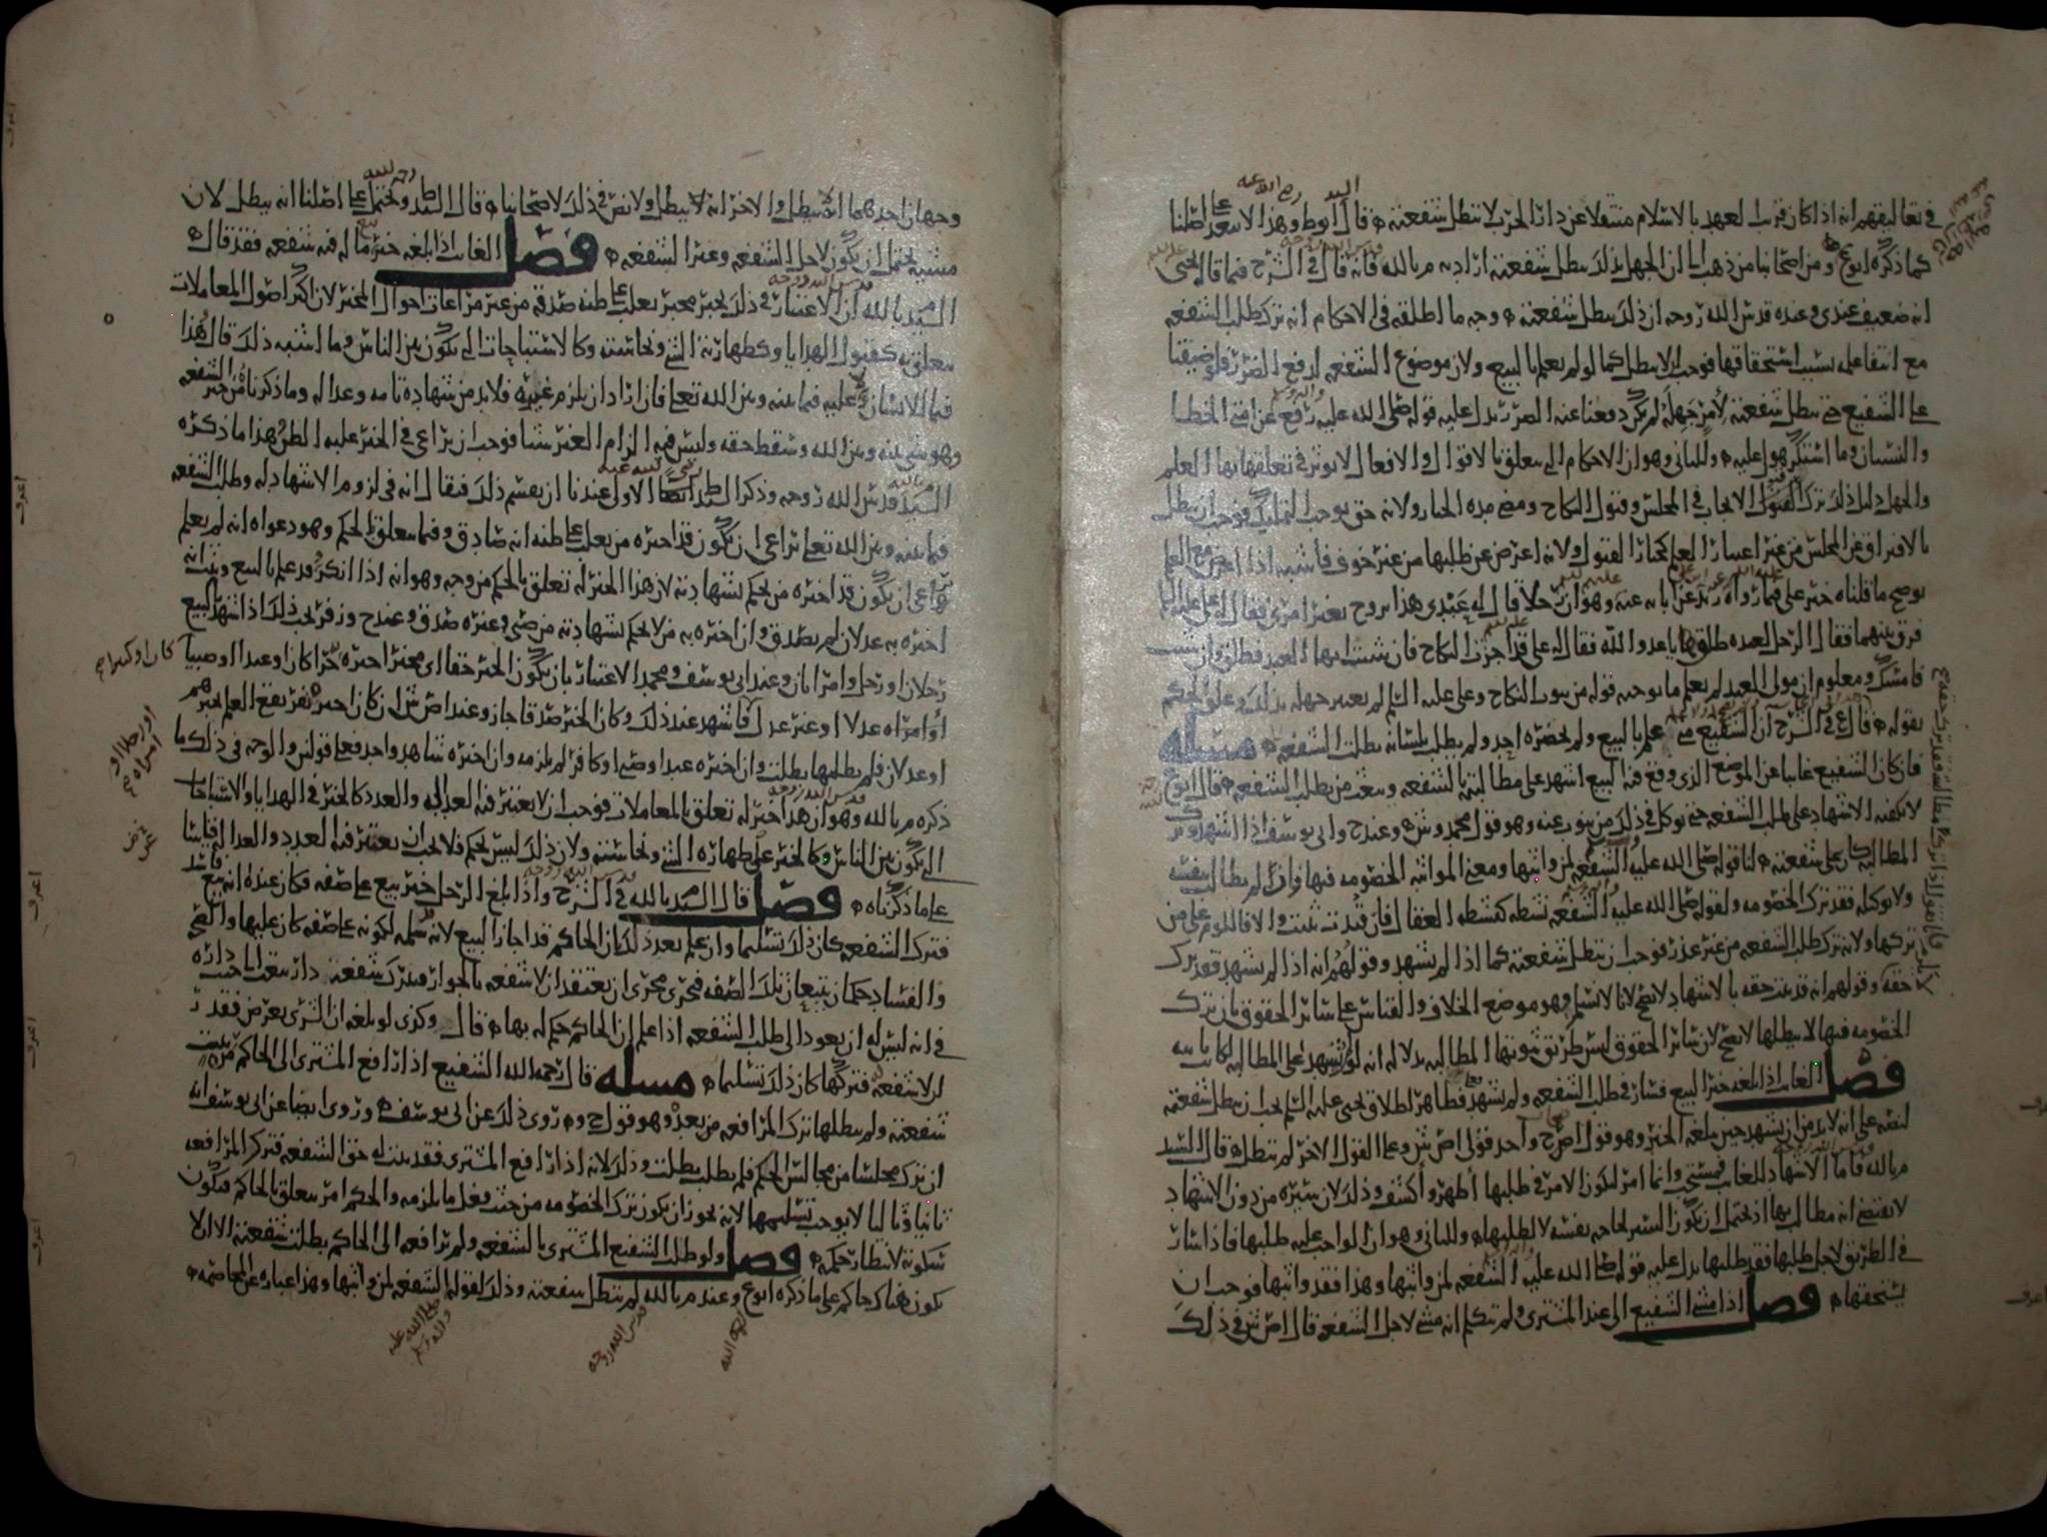 في تعاليقهم انه اذا كان قريب العهد بالاسلام منتقلا عن دار الحرب لا تبطل شفعته قال السيد ابوط وهذا لا يبعد على اصلنا
كما ذكره ابوع ومن اصحابنا من ذهب الى ان الجهل بذلك يبطل شفعته اراد به م بالله فانه قال في الشرح فيما قال يحيى
انه ضعيف عندي وعنده قدس الله روحه ان ذلك يبطل شفعته وجه ما اطلقه في الاحكام انه ترك طلب الشفعه
مع انتفا علمه بسبب استحقاقها فوجب الا يبطل كما لو لم يعلم بالبيع ولان موضوع الشفعه لدفع الضرر فلو ضيقنا
على الشفيع حتى تبطل شفعته لامر جهله لم يكن دفعنا عنه الضرر يدل عليه قوله صلى الله عليه رفع عن امتي الخطا
والنسيان وما استكرهوا عليه وللثاني وهو ان الاحكام التي تتعلق بالاقوال والافعال لا يوثر في تعلقها بها العلم
والجهل دليل ذلك ترك القبول الايجاب في المجلس وقبول النكاح ومضي مدة الخيار ولانه حق يوجب التمليك فوجب ان يبطل
بالافتراق عن المجلس من غير اعتبار العلم كخيار القبول ولانه اعرض عن طلبها من غير خوف فاشبه اذا اعرض مع العلم
يوضح ما قلناه خبر علي فيما رواه زيد عن ابائه عنه وهو ان رجلا قال له عبدي هذا تزوج بغير امري فقال له علي عليه السلم
فرق بينهما فقال الرجل لعبده طلقها يا عدو الله فقال له علي قد اجزت النكاح فان شئت ايها العبد فطلق وان شئت
فامسك ومعلوم ان مولى العبد لم يعلم ما يوجبه قوله من ثبوت النكاح وعلي عليه السلم لم يعتبر جهله بذلك وعلق الحكم
بقوله قال ع في الشرح ان الشفيع متى علم بالبيع ولم يحضره احد ولم يطلب بلسانه بطلت الشفعه مسئله
فان كان الشفيع غايبا عن الموضع الذي وقع فيه البيع اشهد على مطالبته بالشفعه وبعث من يطلب الشفعه قال ابوع
لا يكفيه الاشهاد على طلب الشفعه حتى يوكل في ذلك من ينوب عنه وهو قول محمد وش وعند ح وابي يوسف اذا اشهد وترك
المطالبه كان على شفعته لنا قوله صلى الله عليه الشفعه لمن واثبها ومعنى المواثبه الخصومه فيها وان لم يطالب بنفسه
ولا بوكيله فقد ترك الخصومه ولقوله صلى الله عليه الشفعه نشطه كنشطه العقال فان قيدت ثبتت والا فاللوم على من
تركها ولانه ترك طلب الشفعه من غير عذر فوجب ان تبطل شفعته كما اذا لم يشهد وقولهم انه اذا لم يشهد فقد ترك
حقه وقولهم انه قد ثبت حقه بالاشهاد لا يصح لانا لا نسلم وهو موضع الخلاف والقياس على سائر الحقوق بان ترك
الخصومه فيها لا يبطلها لا يصح لان سائر الحقوق ليس طريق ثبوتها المطالبه بدلاله انه لو لم يشهد على المطالبه لكانت ثابته
فصل الغائب اذا بلغه خبر البيع فسار في طلب الشفعه ولم يشهد فظاهر اطلاق يحيى عليه السلم يجب ان يبطل شفعته
لنصه على انه لا بد من ان يشهد حين بلغه الخبر وهو قول اصح واحد قولي اص ش وعلى القول الاخر لم تبطل قال السيد
م بالله فاما الاشهاد للغائب فيستحب وانما امر ليكون الامر في طلبها اظهر واكشف وذلك لان سيره من دون الاشهاد
لا يقتضي انه مطالب بها اذ يحتمل ان يكون السير لحاجه بنفسه لا لطلبها وللثاني وهو ان الواجب عليه طلبها فاذا سار
في الطريق لاجل طلبها فقد طلبها يدل عليه قوله صلى الله عليه الشفعه لمن واثبها وهذا فقد واثبها فوجب ان
يستحقها فصل اذا مشى الشفيع الى عند المشتري ولم يتكلم انه مشى لاجل الشفعه قال اص ش في ذلك
وجهان احدهما انه يبطل والاخر انه لا يبطل ولا نص في ذلك لاصحابنا قال السيد ط ويحتمل على اصلنا انه يبطل لان
مشيه يحتمل ان يكون لاجل الشفعه وغير الشفعه فصل الغائب اذا بلغه خبر ما له فيه شفعه فقد قال
السيد م بالله ان الاعتبار في ذلك بخبر مخبر يغلب على ظنه صدقه من غير مراعاة احوال المخبر لان اكثر اصول المعاملات
يتعلق به كقبول الهدايا وكطهارة الشي ونجاسته وكالاستباحات التي تكون بين الناس وما اشبه ذلك قال هذا
فيما للانسان وعليه فيما بينه وبين الله تعالى فان اراد ان يلزم غيره فلا بد من شهادة تامه وعداله وما ذكرناه من خبر الشفعه
وهو شي بينه وبين الله وسقط حقه وليس فيه الزام الغير شيا فوجب ان يراعى في الخبر غلبه الظن هذا ما ذكره
السيد م بالله قدس الله روحه وذكر السيد ط رضي الله عنه الاولى عندنا ان يقسم ذلك فيقال انه في لزوم الاشهاد له وطلب الشفعه
فيما بينه وبين الله تعالى يراعى ان يكون قد اخبره من يغلب على ظنه انه صادق وفيما يتعلق بالحكم وهو دعواه انه لم يعلم
يراعى ان يكون قد اخبره من يحكم بشهادته لان هذا الخبر له تعلق بالحكم من وجه وهو انه اذا انكر وقد علم بالبيع وبينت انه
اخبره به عدلان لم يصدق وان اخبره به من لا يحكم بشهادته من صبي وغيره صدق وعند ح وزفر يجب ذلك اذا شهد بالبيع
رجلان او رجل وامراتان وعند ابي يوسف ومحمد الاعتبار بان يكون الخبر حقا اي مخبر اخبره حرا كان او عبدا او صبيا
او امراه عدلا او غير عدل فاشهد عند ذلك وكان الخبر صدقا جاز وعند اص ش ان كان اخبره نفر يقع العلم بخبرهم
او عدلان فلم يطلبها بطلت وان اخبره عبد او صبي او كافر لم يلزمه وان اخبره شاهد واحد فعلى قولين والوجه في ذلك ما
ذكره م بالله وهو ان هذا خبر له تعلق بالمعاملات فوجب ان لا يعتبر فيه العداله والعدد كالخبر في الهدايا والاستباحات
التي تكون بين الناس وكالخبر على طهارة الشي ونجاسته ولان ذلك ليس بحكم فلا يجب ان يعتبر فيه العدد والعداله قياسا
على ما ذكرناه فصل قال السيد م بالله في الشرح واذا بلغ الرجل خبر بيع على صفه فكان عنده انه بيع فاسد
فترك الشفعه كان ذلك تسليما وان علم بعد ذلك ان الحاكم قد اجاز البيع لانه سلمه لكونه على صفه كان عليها والصحه
والفساد حكمان يتبعان تلك الصفه فجرى مجرى ان يعتقد ان لا شفعه بالجوار فيترك شفعته دار بيعت الى جنب داره
في انه ليس له ان يعود الى طلب الشفعه اذا علم ان الحاكم حكم له بها قال وكذى لو بلغه ان الشرى بعرض فقدر
ان لا شفعه فتركها كان ذلك تسليما مسله قال رحمه الله الشفيع اذا رافع المشتري الى الحاكم ثبتت
شفعته ولم يبطلها ترك المرافعه من بعد وهو قول ح وروي ذلك عن ابي يوسف وروي ايضا عن ابي يوسف انه
ان ترك مجلسا من مجالس الحكم فلم يطلب بطلت وذلك لانه اذا رافع المشتري فقد ثبت له حق الشفعه فترك المرافعه
ثانيا وثالثا لا يوجب تسليمها لانه يجوز ان يكون ترك الخصومه من حيث فعل ما يلزمه والحكم امر يتعلق بالحاكم فيكون
سكوته لانتظار حكمه فصل ولو طلب الشفيع المشتري بالشفعه ولم يرافعه الى الحاكم بطلت شفعته الا ان لا
يكون هناك حاكم على ما ذكره ابوع وعند م بالله لم تبطل شفعته وذلك لقوله الشفعه لمن واثبها وهذا عباره عن المخاصمه